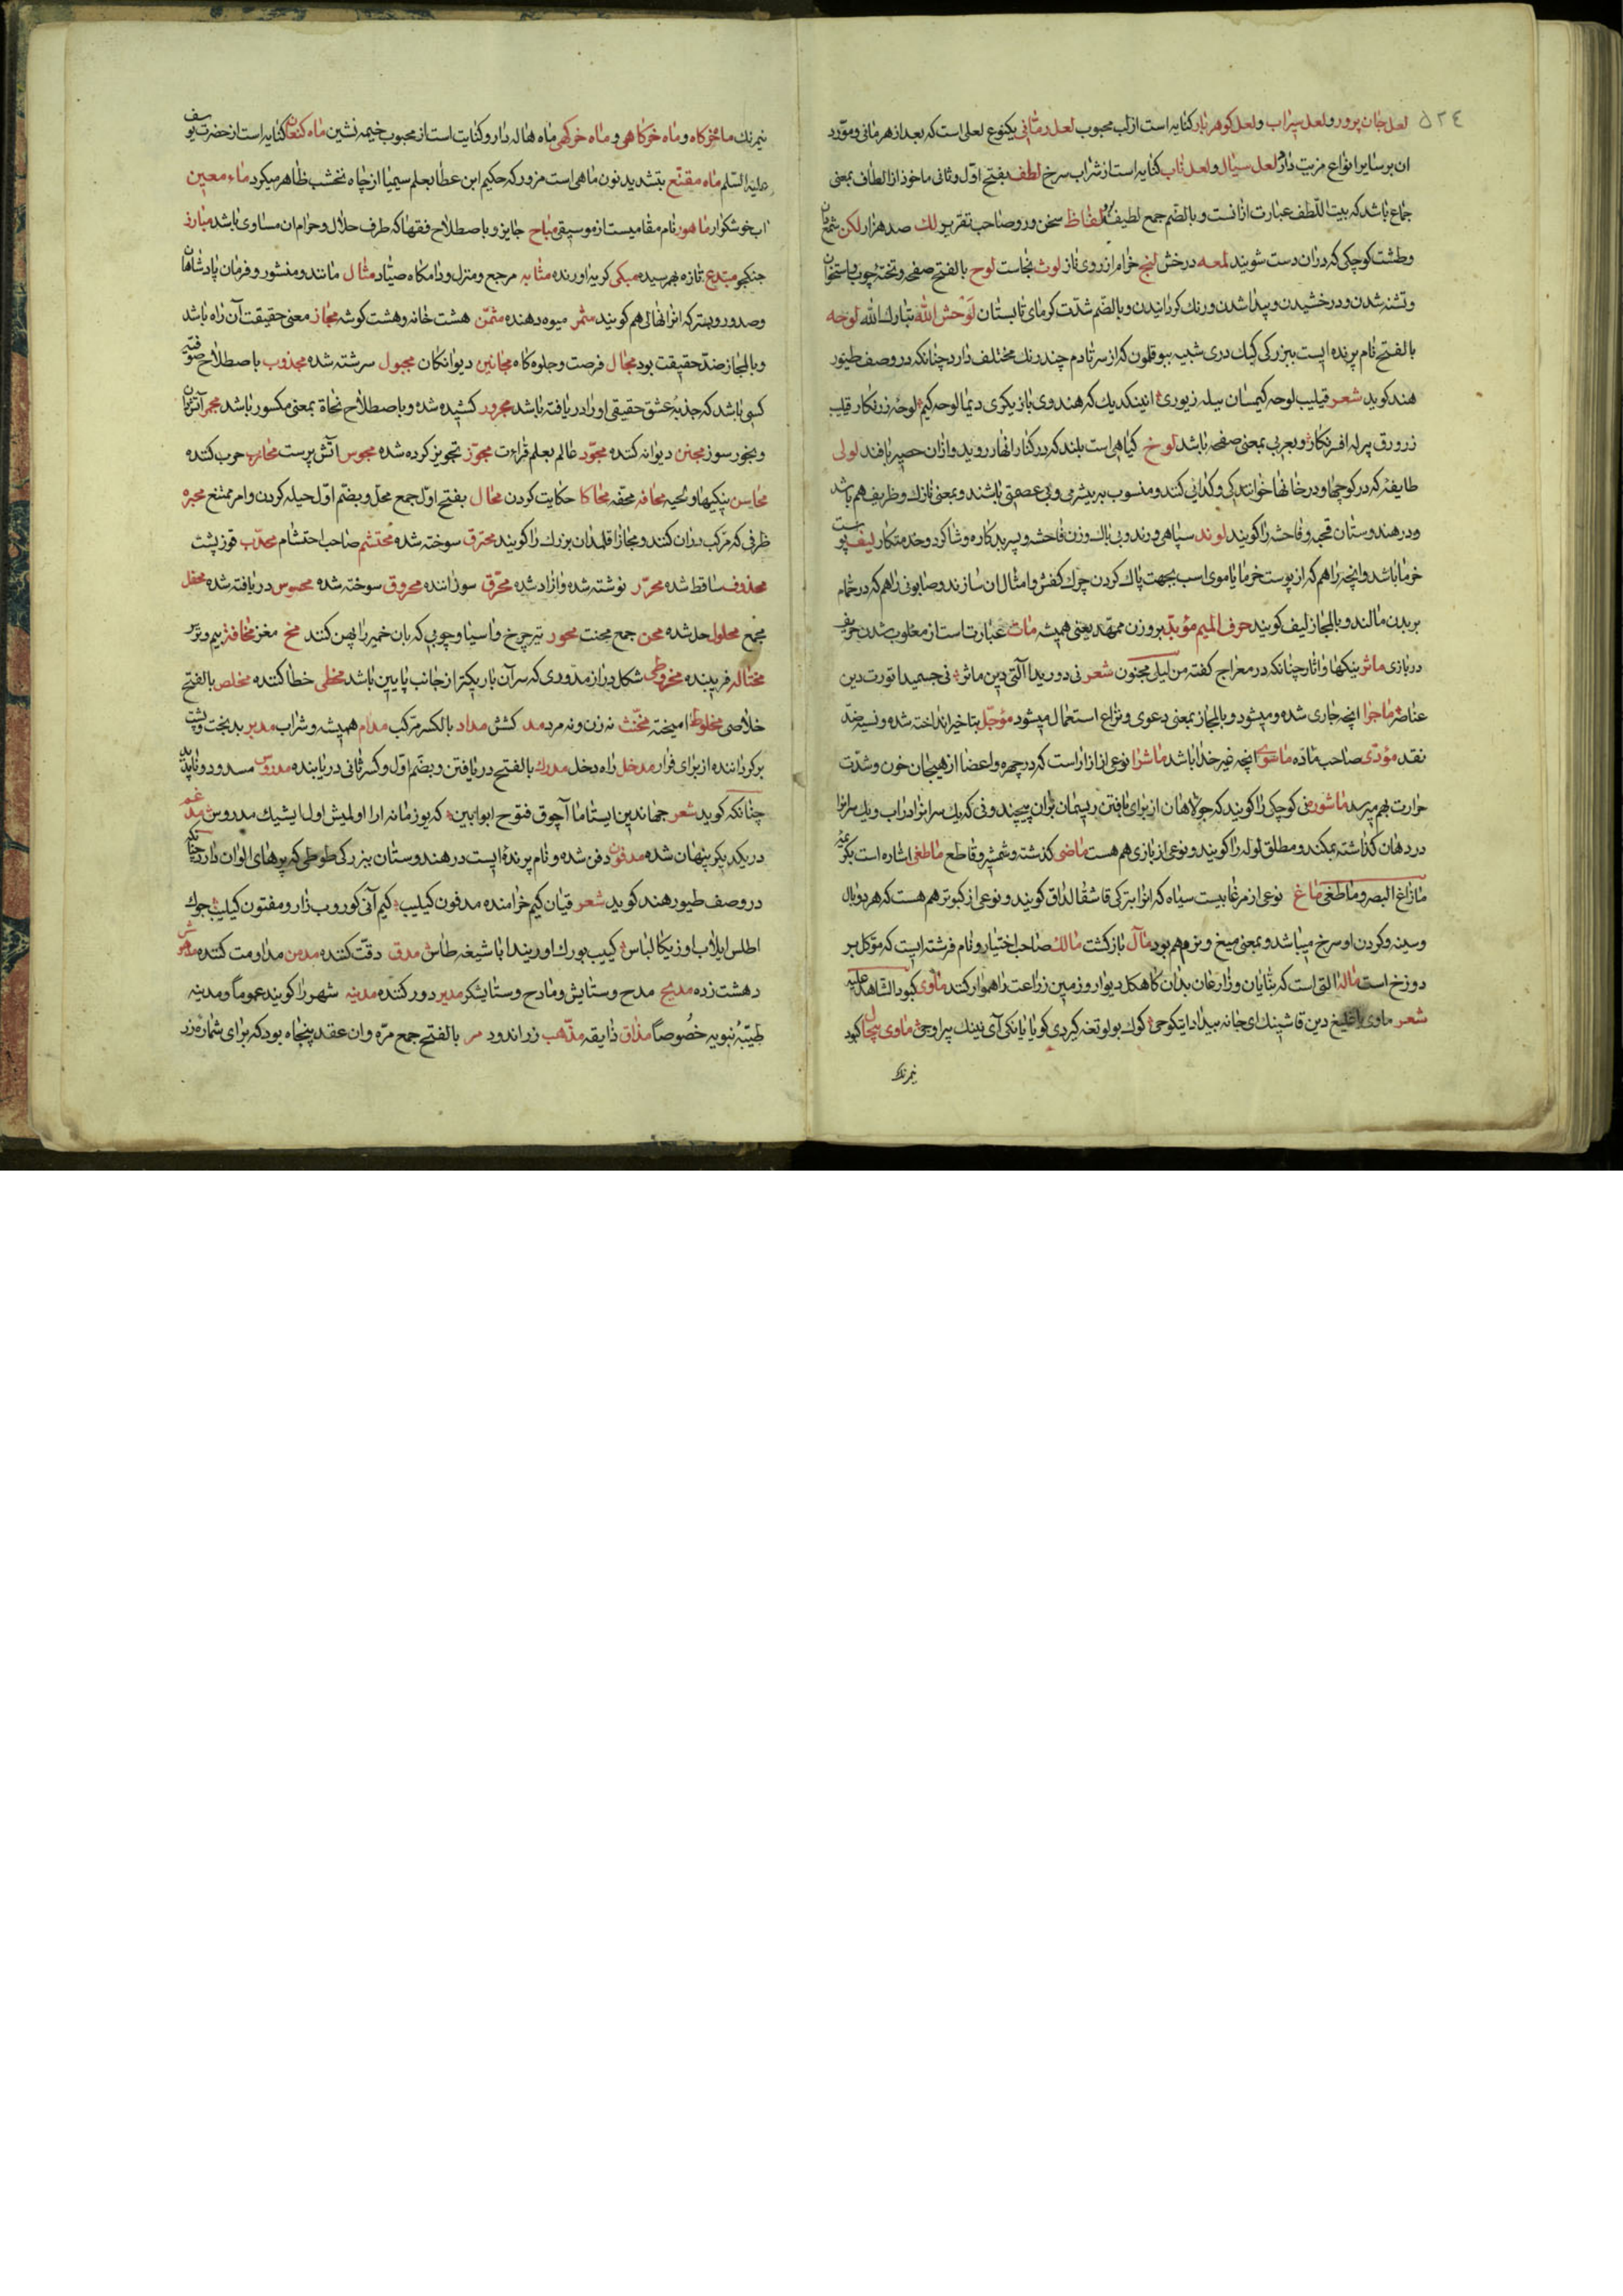 ٥٢٤
لعل جان پرور و لعل سیراب و لعل کوهربار کنایه است از لب محبوب لعل رمّانی یکنوع لعلی است که بعد از هرمانی و مورّد
ان بر سایر انواع مزیت دارد لعل سیّال و لعل ناب کنایه است از شراب سرخ لطف بفتح اوّل و ثانی ماخوذ از الطاف بمعنی
جماع باشد که بیت اللّطف عبارت از انست و بالضّم جمع لطیف لفّاظ سخن ور و صاحب تقریر لك صد هزار لکن شمعدان
و طشت کوچکی که در ان دست شویند لمعه درخش لنج خرام از روی ناز لوث نجاست لوح بالفتح صفحه و تخته چوب و استخوان
و تشنه شدن و درخشیدن و پیدا شدن و رنك کردانیدن و بالضّم شدّت کرمای تابستان لوحش الله تبارك الله لوحه
بالفتح نام پرنده ایست ببزرکی کبك دری شبیه ببوقلمون که از سر تا دم چند رنك مختلف دارد چنانکه در وصف طیور
هند کوید شعر قیلیب لوحه کیمسان بیله زیوری انینکدیك که هندوی بازیکری دیما لوحه کیم لوحهٔ زرنکار قیلیب
زر ورق پرله افرنکار و بعربی بمعنی صفحه باشد لوخ کیاهی است بلند که در کنار انهار روید و از ان حصیر بافند لولی
طایفه که در کوچها و در خانها خوانندکی و کدائی کنند و منسوب به بیشرمی و بی عصمتی باشند و بمعنی نازك و ظریف هم باشد
و در هندوستان قحبه و فاحشه را کویند لوند سپاهی و رند و بی باك و زن فاحشه و پسر بدکاره و شاکرد و خدمتکار لیف پوست
خرما باشد و انچه را هم که از پوست خرما یا موی اسب بجهت پاك کردن چرك کفش و امثال ان سازند و صابونی را هم که در حمام
بر بدن مالند و بالمجاز لیف کویند حرف المیم مؤبّد بر وزن ممهّد یعنی همیشه مات عبارت است از مغلوب شدن حریف
در بازی ماثر نیکیها و اثار چنانکه در معراج کفته من لیلی مجنون شعر نی دور یدا آلتی دین ماثر نی جسمیدا تورت دین
عناصر ماجرا انچه جاری شده و میشود و بالمجاز بمعنی دعوی و نزاع استعمال میشود مؤجّل بتاخیر انداخته شده و نسیه ضدّ
نقد مؤدّی صاحب مادّه ماسوی انچه غیر خدا باشد ماشرا نوعی از ازار است که در چهره و اعضا از هیجان خون و شدّت
حرارت بهم میرسد ماشوره نی کوچکی را کویند که جولاهان از برای بافتن ریسمان بر ان پیچند و نی که یك سر انرا در اب و یك سر انرا
در دهان کذاشته بمکند و مطلق لوله را کویند و نوعی از بازی هم هست ماضی کذشته و شمشیر و قاطع ماطغی اشاره است بکریمه
مازاغ البصر و ماطغی ماغ نوعی از مرغابیست سیاه که انرا بترکی قاشقالداق کویند و نوعی از کبوتر هم هست که هر دو بال
و سینه و کردن او سرخ میباشد و بمعنی میغ و نزم هم بود مآل بازکشت مالك صاحب اختیار و نام فرشته ایست که موکل بر
دوزخ است ماله التی است که بنّایان و زارعان بدان کاهکل دیوار و زمین زراعت را هموار کنند ماوی کبود الشاهد علیه
شعر ماوی دین قاشینك ای جانه بیدادایتکوجی کوك بولوتغه کیردی کویا یانکی آی نینك پر اوجی ماوی پیچال کبود
نیمرنك
نیمرنك ماه خرکاه و ماه خرکاهی و ماه خرکهی ماه هاله دار و کنایت است از محبوب خیمه نشین ماه کنعان کنایه است از حضرت یوسف
علیه السّلم ماه مقنّع بتشدید نون ماهی است مزور که حکیم ابن عطا بعلم سیمیا از چاه نخشب ظاهر میکرد ماء معین
اب خوشکوار ماهور نام مقامیست از موسیقی مباح جایز و باصطلاح فقها که طرف حلال و حرام ان مساوی باشد مبارز
جنکجو مبتدع تازه بهم رسیده مبکی کریه اورنده مثابه مرجع و منزل و دامکاه صیّاد مثال مانند و منشور و فرمان پادشاهان
و صدور و بستر که انرا نهالی هم کویند مثمر میوه دهنده مثمّن هشت خانه و هشت کوشه مجاز معنی حقیقت آن راه باشد
و بالمجاز ضدّ حقیقت بود مجال فرصت و جلوه کاه مجانین دیوانکان مجبول سرشته شده مجذوب باصطلاح صوفیّه
کسی باشد که جذبهٔ عشق حقیقی او را دریافته باشد مجرور کشیده شده و باصطلاح نحاة بمعنی مکسور باشد مجمر آتشدان
و بخور سوز مجنن دیوانه کننده مجوّد عالم بعلم قراءت مجوّز تجویز کرده شده مجوس اتش پرست محارب حرب کننده
محاسن نیکیها و لحیه محافه محفّه محاکا حکایت کردن محال بفتح اوّل جمع محلّ و بضّم اوّل حیله کردن و امر ممتنع محبره
ظرفی که مرکّب در ان کنند و مجازا قلمدان بزرك را کویند محترق سوخته شده محتشم صاحب احتشام محدّب قوز پشت
محذوف ساقط شده محرّر نوشته شده و ازاد شده محرّق سوزاننده محروق سوخته شده محسوس دریافته شده محفل
مجمع محلول حل شده محن جمع محنت محور تیر چرخ و اسیا و چوبی که بان خمیر را پهن کنند مخ مغز مخافة بیم و ترس
مختاله فریبنده مخروطی شکل دراز مدوّری که سر آن باریکتر از جانب پایین باشد مخطی خطا کننده مخلص بالفتح
خلاصی مخلوط امیخته مخنّث نه زن و نه مرد مد کشش مداد بالکسر مرکّب مدام همیشه و شراب مدبر بدبخت و پشت
بر کرداننده از برای فرار مدخل راه دخل مدرك بالفتح دریافتن و بضّم اوّل و کسر ثانی دریابنده مدروس مسدود و ناپدید
چنانکه کوید شعر جهاندین ایستاما آچوق فتوح ابوابین که یوز مانه ارا اولمیش اول ایشیك مدروس مدغم
در یکدیکر پنهان شده مدفون دفن شده و نام پرندهٔ ایست در هندوستان ببزرکی طوطی که پرهای الوان دارد چنانکه
در وصف طیور هند کوید شعر قیان کیم خرامنده مدفون کیلیب کیم آنی کوروب زار و مفتون کیلیب جوك
اطلس ایلاب اوزیکا لباس کییب بورك اوریندا باشیغه طاس مدق دقّت کننده مدمن مداومت کننده مدهش
دهشت زده مدیح مدح و ستایش و مادح و ستایشکر مدیر دور کننده مدینه شهر را کویند عموماً و مدینه
طیّبهٔ نبویه خصوصاً مذاق ذایقه مذّهب زر اندود مر بالفتح جمع مرّه و ان عقد پنجاه بود که برای شماره زر